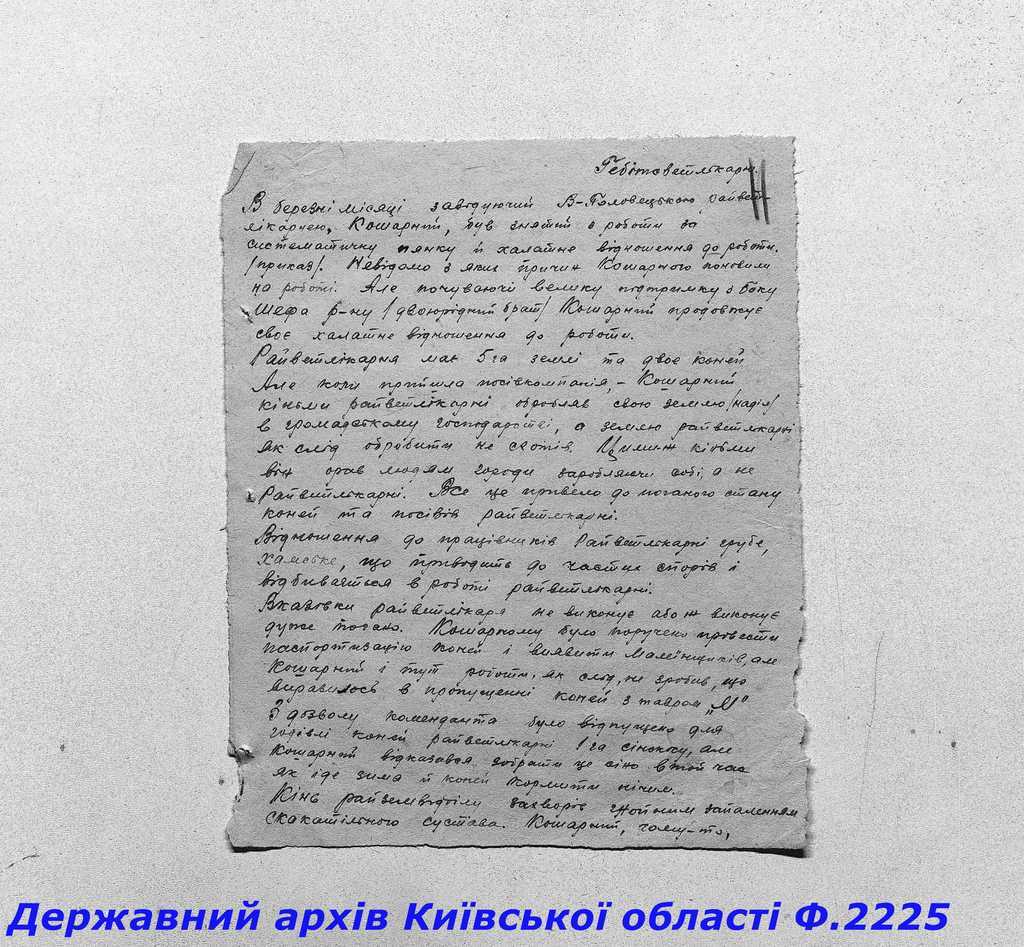 Гебітсветлікарю.
В березні місяці завідуючий В-Половецькою райвет-
лікарнею, Кошарний, був знятий з роботи за
систематичну пянку й халатне відношення до роботи.
/приказ/. Невідомо з яких причин Кошарного поновили
на роботі. Але почуваючи велику підтримку з боку
Шефа р-ну /двоюрідний брат/ Кошарний продовжує
своє халатне відношення до роботи.
Райветлікарня має 5 га землі та двоє коней
Але коли прийшла посівкомпанія, – Кошарний
кіньми райветлікарні обробляв свою землю /наділ/
в громадському господарстві, а землю райветлікарні
як слід обробити не схотів. Цими ж кіньми
він орав людям городи заробляючи собі, а не
Райветлікарні. Все це привело до поганого стану
коней та посівів райветлікарні.
Відношення до працівників Райветлікарні грубе,
хамське, що приводить до частих спорів і
відбивається в роботі райветлікарні.
Вказовки райветлікаря не виконує або ж виконує
дуже погано. Кошарному було поручено провести
паспортизацію коней і виявити малеїнщиків, але
Кошарний і тут роботи, як слід, не зробив, що
виразилось в пропущенні коней з тавром „М"
З дозволу коменданта було відпущено для
годівлі коней райветлікарні 1 га сінокосу, але
Кошарний відказався зобрати це сіно в той час
як іде зима й коней кормити нічим.
Кінь райземвідділу захворів гнойним запаленням
скакатільного сустава. Кошарний, чомусь-то,
Державний архів Київської області Ф.2225